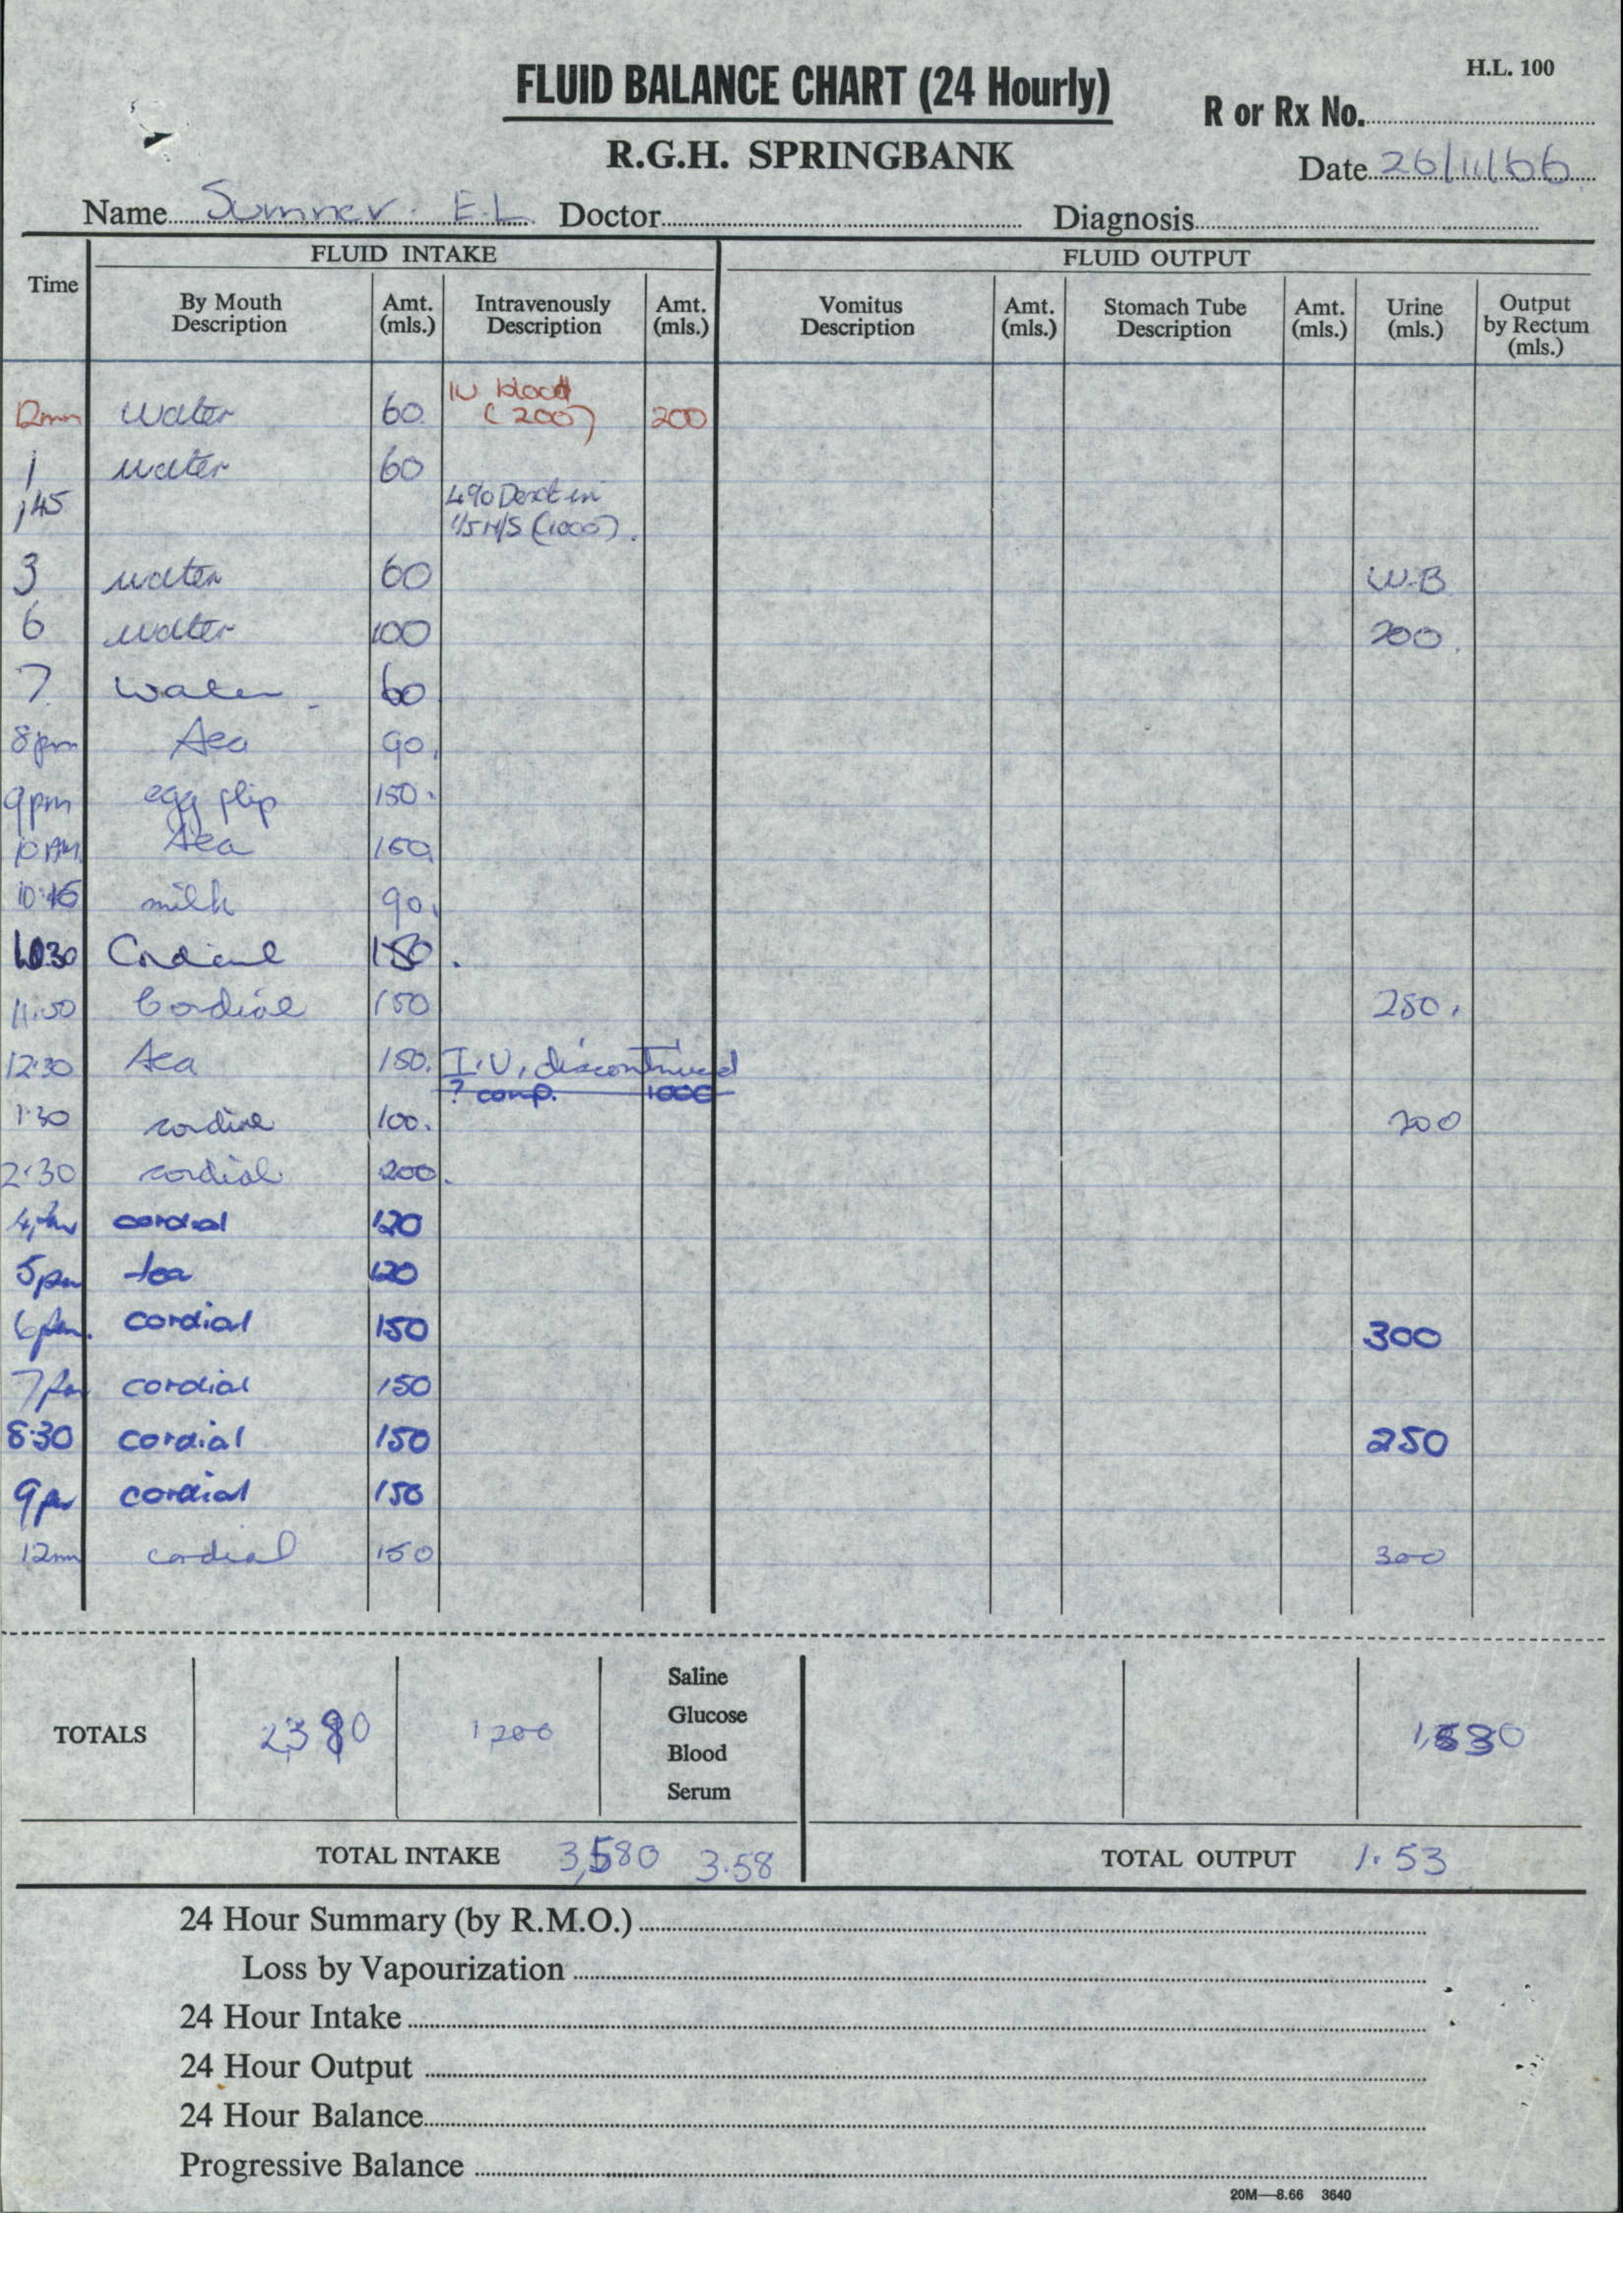 H.L. 100
FLUID BALANCE CHART (24 Hourly)
R or Rx No.
R.G.H. SPRINGBANK
Date 26/11/66
Name Sumner. E.L. Doctor Diagnosis
FLUID INTAKE FLUID OUTPUT
Time By Mouth Description Amt. (mls.) Intravenously Description Amt. (mls.) Vomitus Description Amt. (mls.) Stomach Tube Description Amt. (mls.) Urine (mls.) Output by Rectum (mls.)
12mn water 60 IV blood (200) 200
1 water 60
145 4% Dext in 1/5 N/S (1000).
3 water 60 W.B
6 water 100 200.
7 water 60
8pm tea 90.
9pm egg flip 150.
10 AM tea 150
10:45 milk 90.
Cordial 150.
11.50 Cordial 150 250.
12.30 tea 150. I.V. discontinued
? comp. 1000
1.30 cordial 100. 200
2.30 cordial 200.
4pm cordial 120
5pm tea 120
6pm. cordial 150 300
7pm cordial 150
8.30 cordial 150 250
9pm cordial 150
12mn cordial 150 300
TOTALS 2,380 1200 Saline
Glucose
Blood
Serum
TOTAL INTAKE 3,580 3.58 TOTAL OUTPUT 1.53
24 Hour Summary (by R.M.O.)
Loss by Vapourization
24 Hour Intake
24 Hour Output
24 Hour Balance
Progressive Balance
20M—8.66 3640